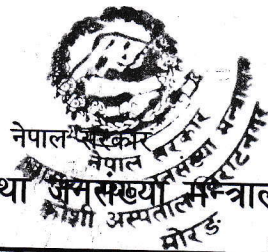 नेपाल सरकार
नेपाल सरकार
था जनसंख्या मन्त्राल
जनसंख्या मन्त्रा
कोशी अस्पताल
विराटनगर
मोरङ